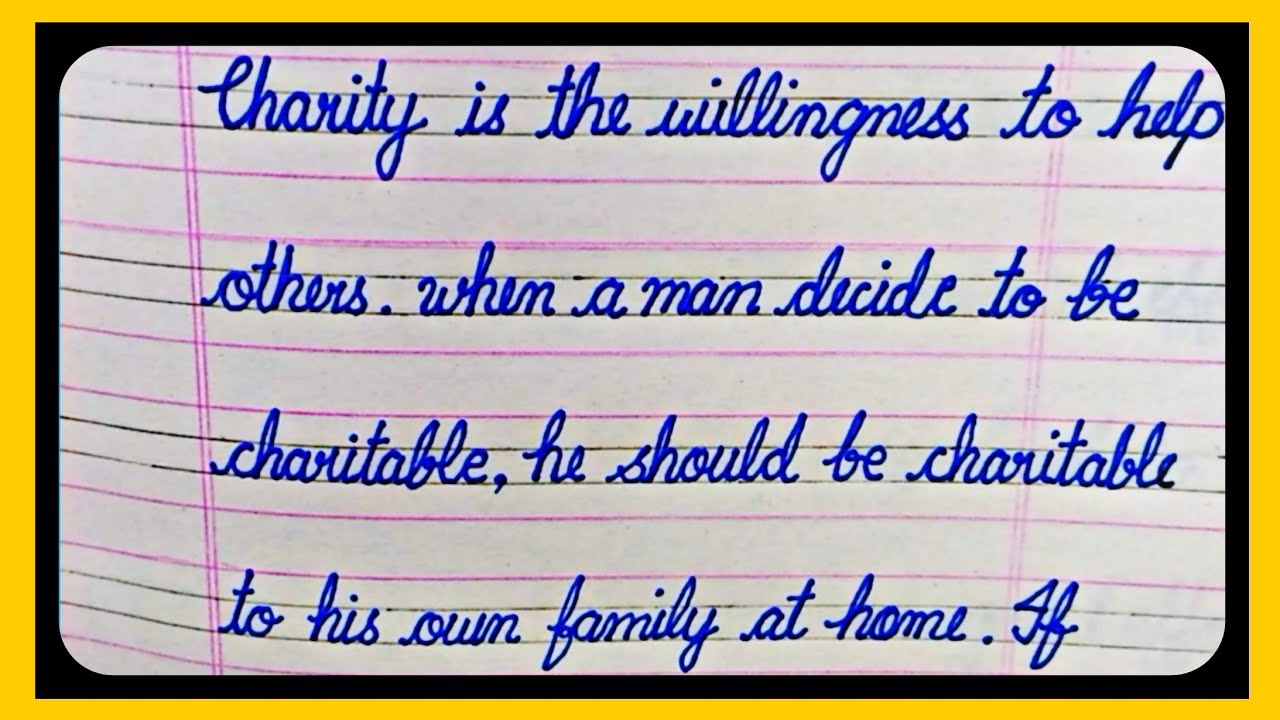 Charity is the willingness to help
others. when a man decide to be
charitable, he should be charitable
to his own family at home. If